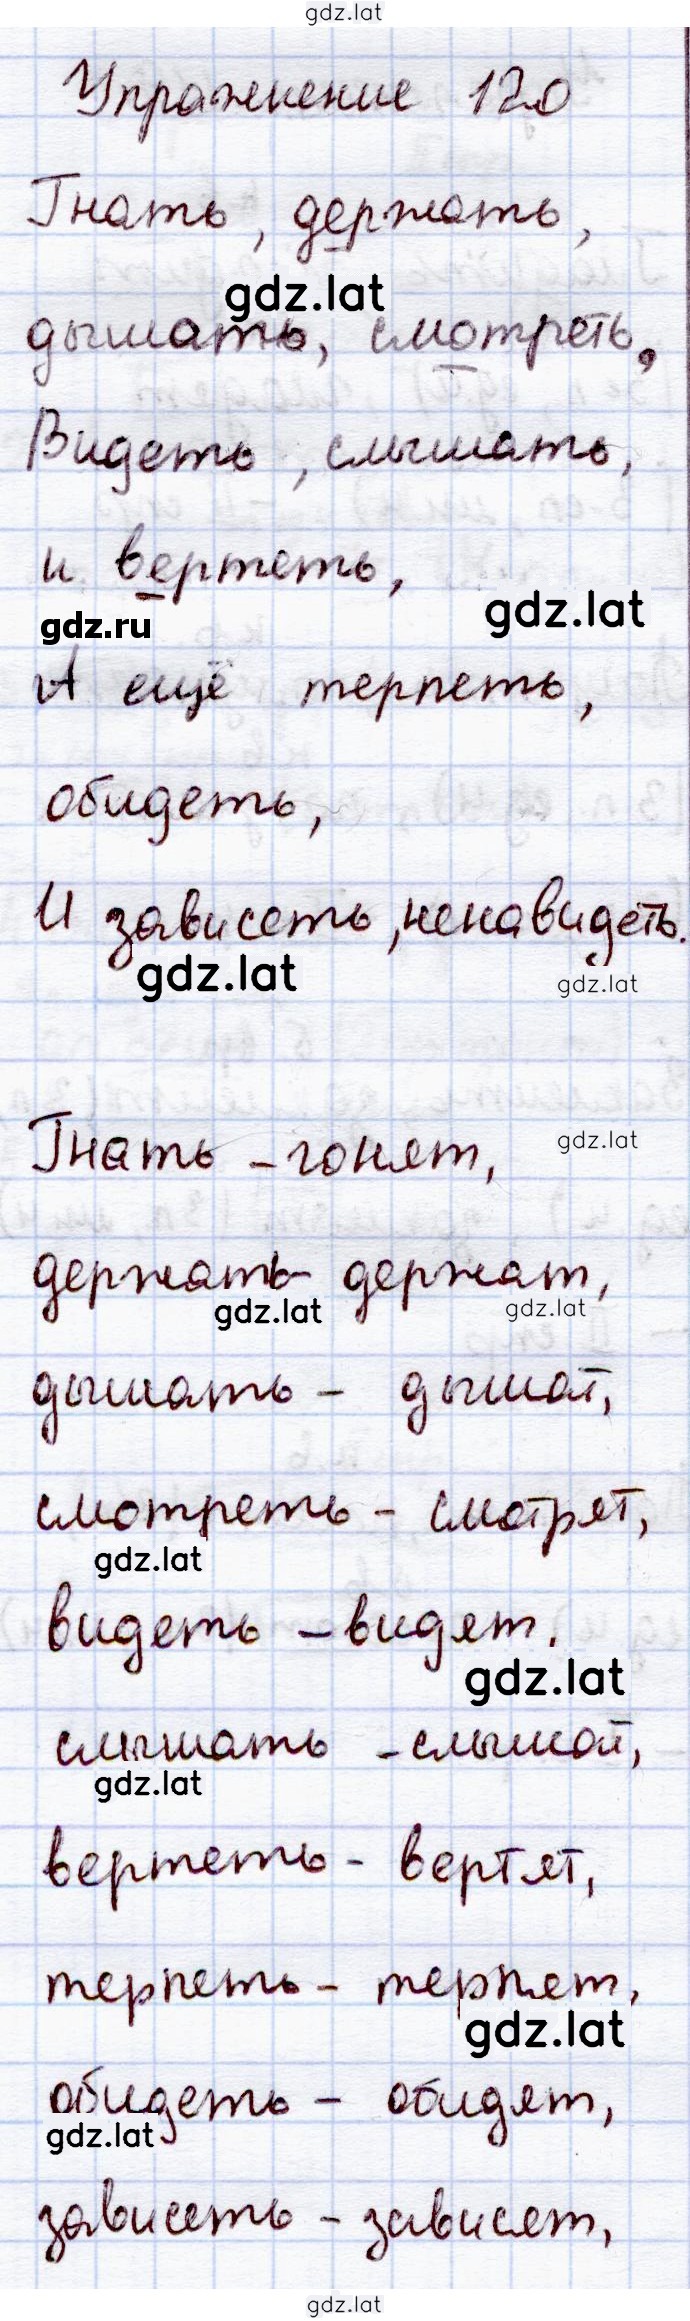 gdz.lat
Упражнение 120
Гнать, держать,
gdz.lat
дышать, смотреть,
Видеть, слышать,
и вертеть,
gdz.lat
gdz.ru
А ещё терпеть,
обидеть,
И зависеть, ненавидеть.
gdz.lat
gdz.lat
Гнать - гонят,
gdz.lat
держать - держат,
gdz.lat
gdz.lat
дышать - дышат,
смотреть - смотрят,
gdz.lat
видеть - видят,
gdz.lat
слышать - слышат,
gdz.lat
вертеть - вертят,
терпеть - терпят,
gdz.lat
обидеть - обидят,
gdz.lat
зависеть - зависят,
gdz.lat